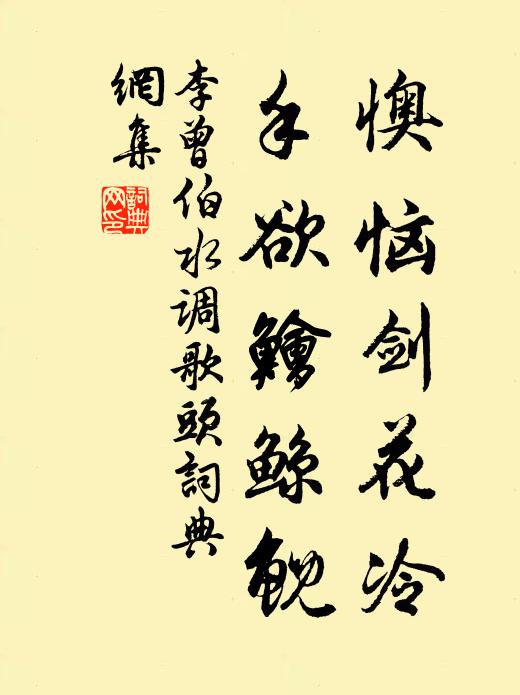 懊恼剑花冷
手欲鱠鲸鲵
李曾伯水调歌頭詞典
網集
詞典
网印